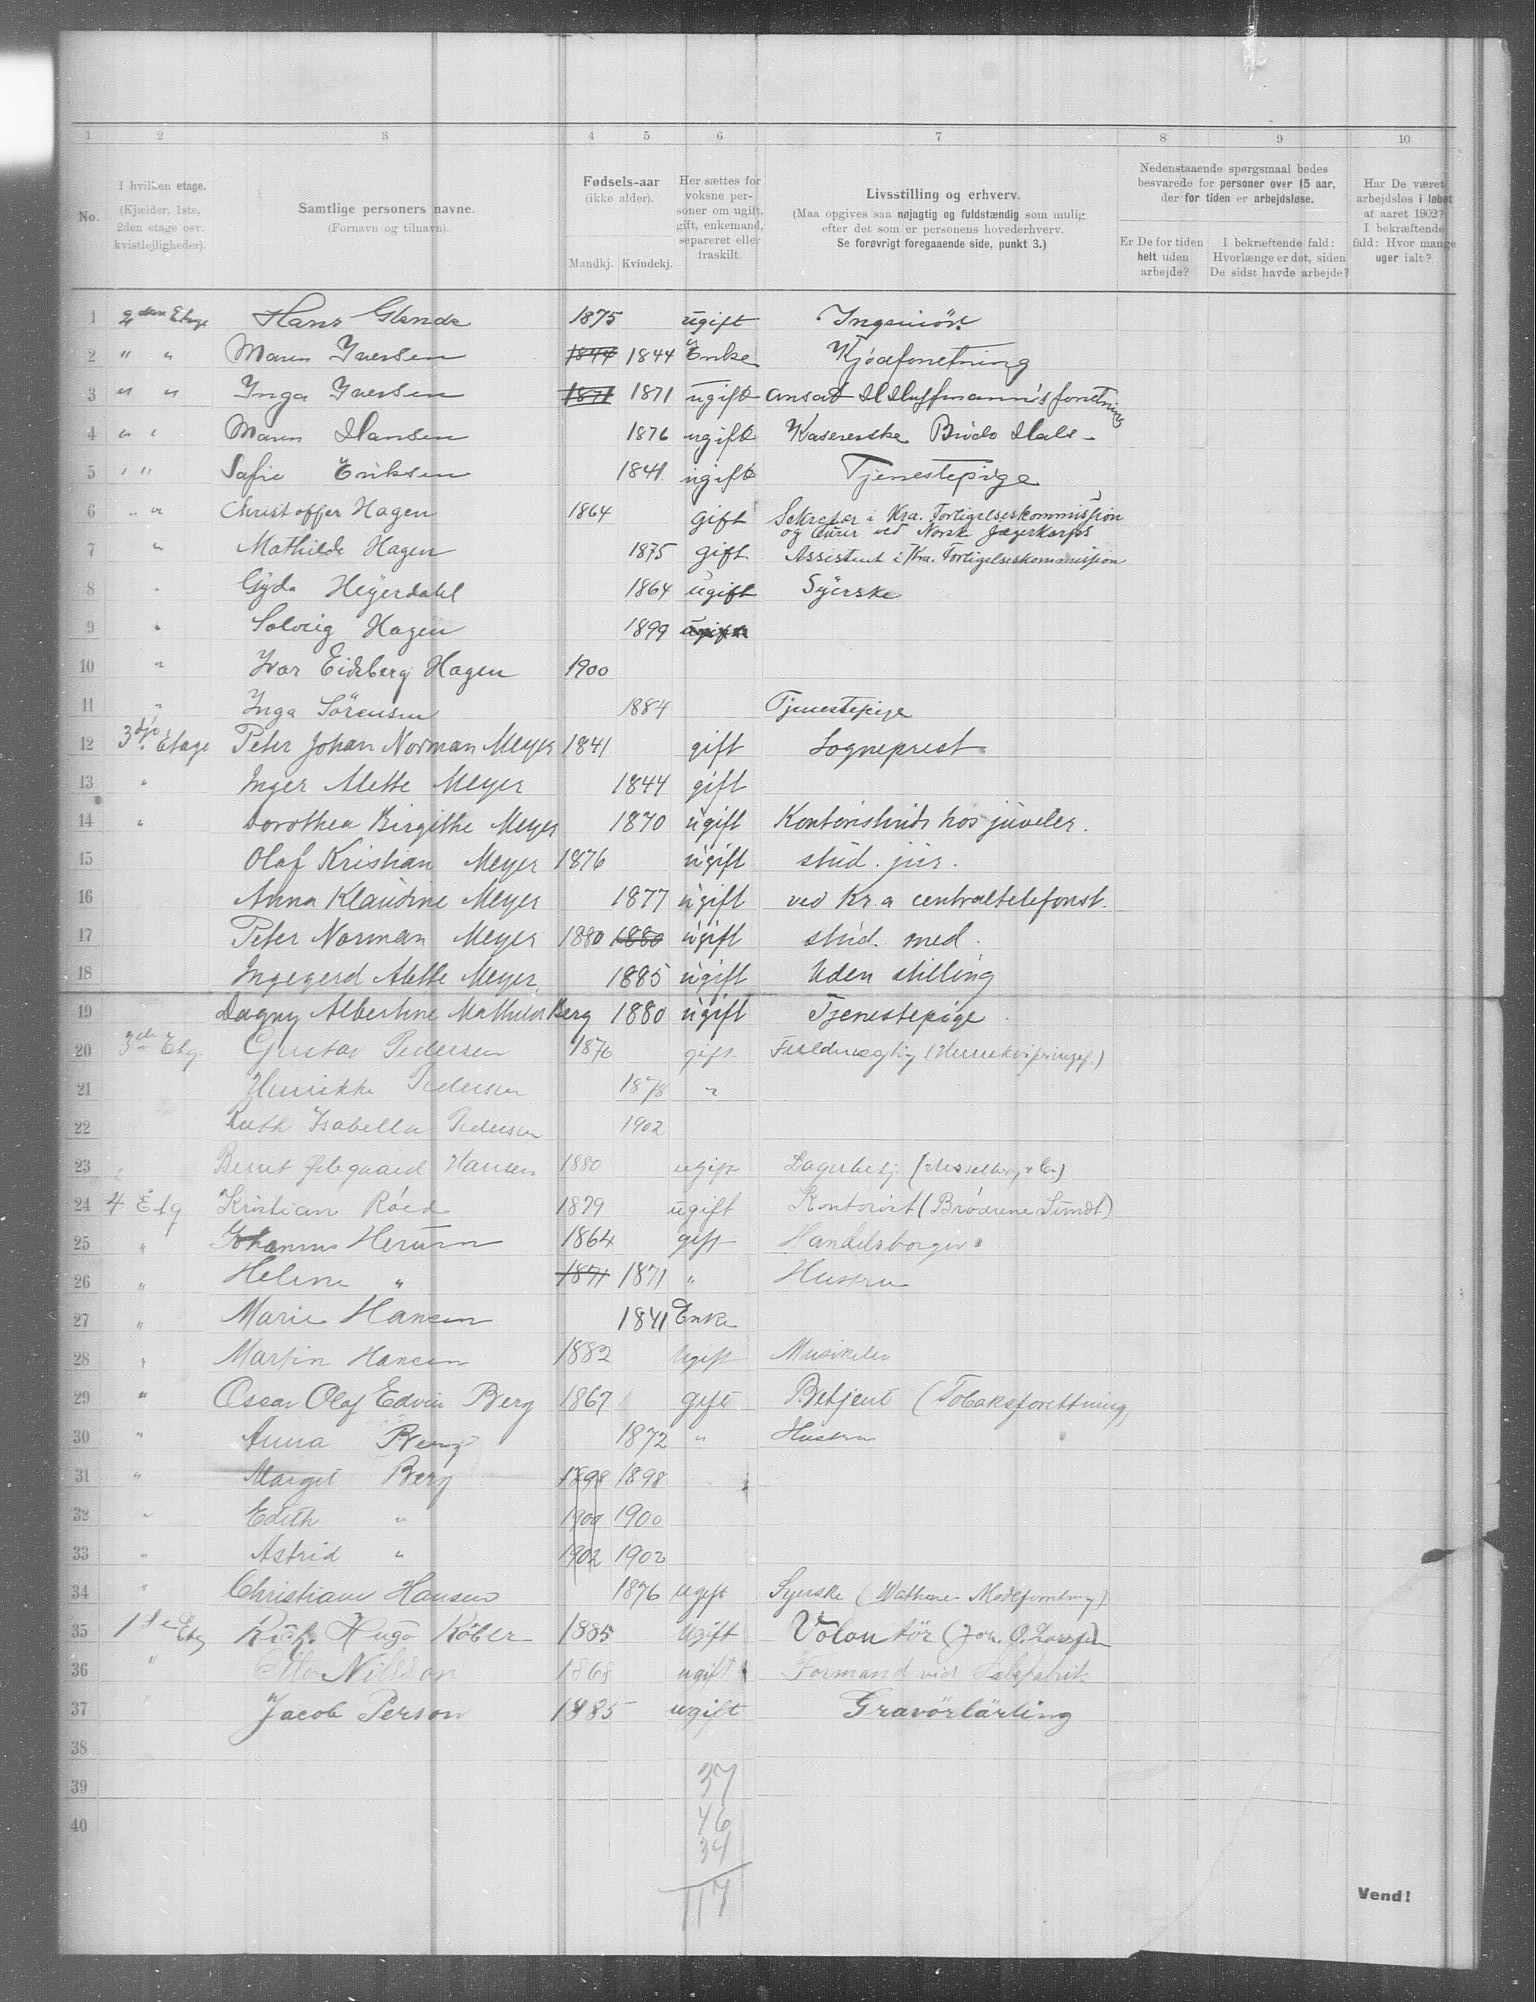 1 2 3 4 5 6 7 8 9 10
No.
I hvilken etage.
(Kjælder, 1ste,
2den etage osv.
kvistlejligheder).
Samtlige personers navne.
(Fornavn og tilnavn).
Fødsels-aar
(ikke alder).
Mandkj. Kvindekj.
Her sættes for
voksne per-
soner om ugift,
gift, enkemand,
separeret eller
fraskilt.
Livsstilling og erhverv.
(Maa opgives saa nøjagtig og fuldstændig som mulig
efter det som er personens hovederhverv.
Se forøvrigt foregaaende side, punkt 3.)
Nedenstaaende spørgsmaal bedes
besvarede for personer over 15 aar,
der for tiden er arbejdsløse.
Er De for tiden
helt uden
arbejde?
I bekræftende fald:
Hvorlænge er det, siden
De sidst havde arbejde?
Har De været
arbejdsløs i løbet
af aaret 1902?
I bekræftende
fald: Hvor mange
uger ialt?
1 2den Etage Hans Glende 1875 ugift Ingeniör
2 " " Maren Iversen 1844 1844 Enke Kjødforretning
3 " " Inga Iversen 1871 1871 ugift ansat forretning
4 " " Maren Hansen 1876 ugift Kasererske
5 " " Safie Eriksen 1841 ugift Tjenestepige
6 " " Christoffer Hagen 1864 gift Sekretær i Kra. Forligelseskommission
og ved Norsk Jægerkorps
7 " Mathilde Hagen 1875 gift Assistent i Kra. Forligelseskommission
8 " Gyda Heyerdahl 1864 ugift Syerske
9 " Solveig Hagen 1899 ugift
10 " Ivar Eidsberg Hagen 1900
11 " Inga Sörensen 1884 Tjenestepige
12 3dje Etage Peter Johan Norman Meyer 1841 gift Sogneprest
13 " Inger Alette Meyer 1844 gift
14 " Dorothea Birgithe Meyer 1870 ugift Kontoristinde hos juveler.
15 Olaf Kristian Meyer 1876 ugift stud. jur.
16 Anna Klaudine Meyer 1877 ugift ved Kr.a centraltelefonst.
17 Peter Norman Meyer 1880 1880 ugift stud. med.
18 Ingegerd Alette Meyer 1885 ugift Uden stilling
19 Dagny Albertine Mathilde Berg 1880 ugift Tjenestepige
20 3die Etg. Gustav Pedersen 1876 gift Fuldmægtig
21 Henrikke Pedersen 1878 "
22 Ruth Isabella Pedersen 1902
23 Bernt Ødegaard Hansen 1880 ugift Lagerbetj.
24 4 Etg Kristian Röed 1879 ugift Kontorist (Brödrene Sundt)
25 " Johannes Herum 1864 gift Handelsborger
26 " Helene " 1871 1871 " Hustru
27 " Marie Hansen 1841 Enke
28 " Martin Hansen 1882 Ugift Musikelev
29 " Oscar Olaf Edvin Berg 1867 gift Betjent (Tobaksforettning)
30 " Anna Berg 1872 " Hustru
31 " Margit Berg 1898 1898
32 " Edith " 1900 1900
33 " Astrid " 1902 1902
34 " Christiane Hansen 1876 ugift Syerske
35 1ste Etg Rich. Hugo Köbler 1885 Ugift Volontör
36 " Otto Nilsson 1868 ugift Formand
37 " Jacob Person 1885 ugift Gravörlärling
38
39
40
37
46
34
117
Vend!